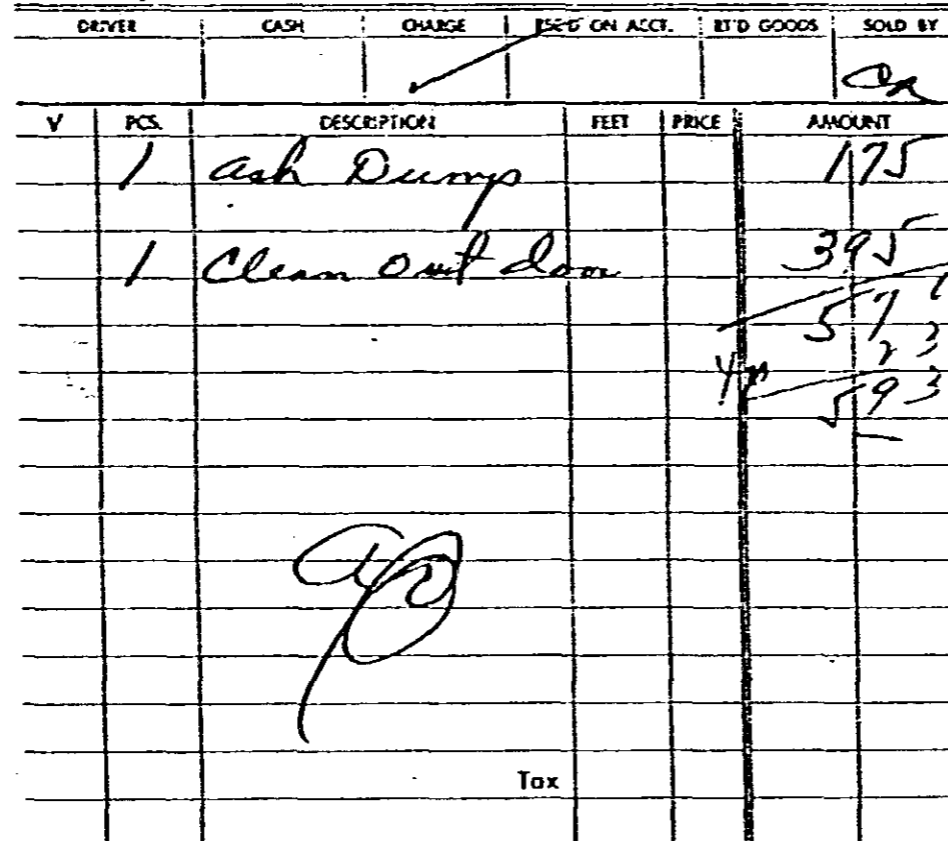 DRIVER CASH CHARGE REC'D ON ACCT. RT'D GOODS SOLD BY
V PCS. DESCRIPTION FEET PRICE AMOUNT
1 Ash Dump 1 75
1 Clean Out door 3 95
5 7
23
5 93
Tax